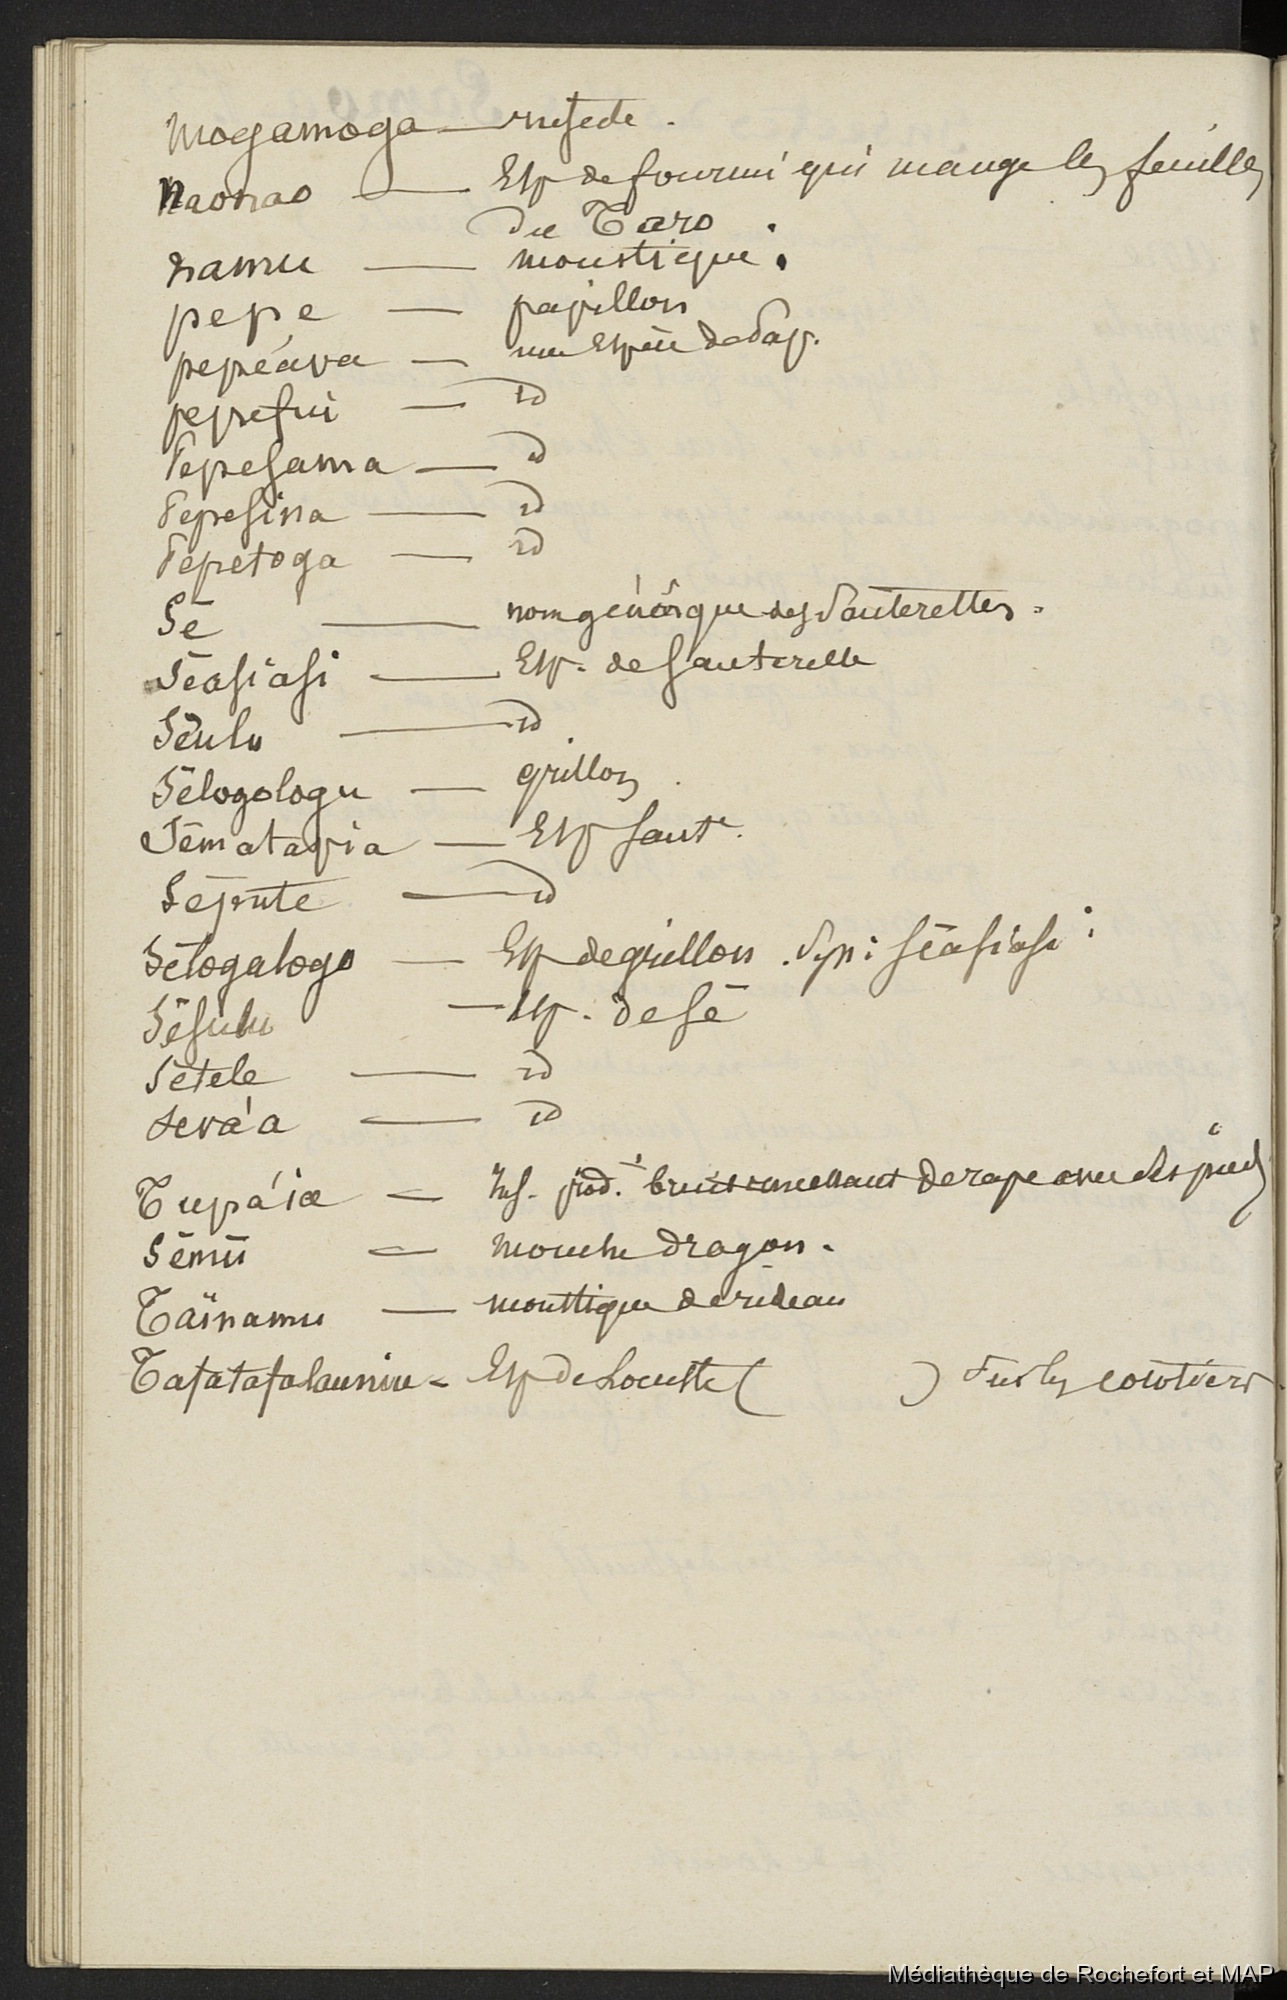 Mogamoga — insecte.
Naonao — Esp de fourmi qui mange les feuilles
du Taro
namu — moustique.
pepe — papillon
pepeáva — une Espèce de Pap.
pepefui — id
Pepesama — id
Pepesina — id
Pepetoga — id
Sē — nom générique des Sauterettes.
Sēasiasi — Esp. de Sauterelle
Sēulu — id
Sēlogologu — grillon
Sēmatapia — Esp Saute.
Sēpute — id
Sētogatogo — Esp de grillon. Syn: Sēasiasi
Sēsulu — Esp. de Sē
Sētele — id
Seva'a — id
Tupa'ia — Ins. prod.t bruit de rape avec des pieds
Sēmū — mouche dragon.
Taïnamu — moustique de rideau
Tafatafalauniu - Esp de Locuste ( ) sur les cocotiers
Médiathèque de Rochefort et MAP